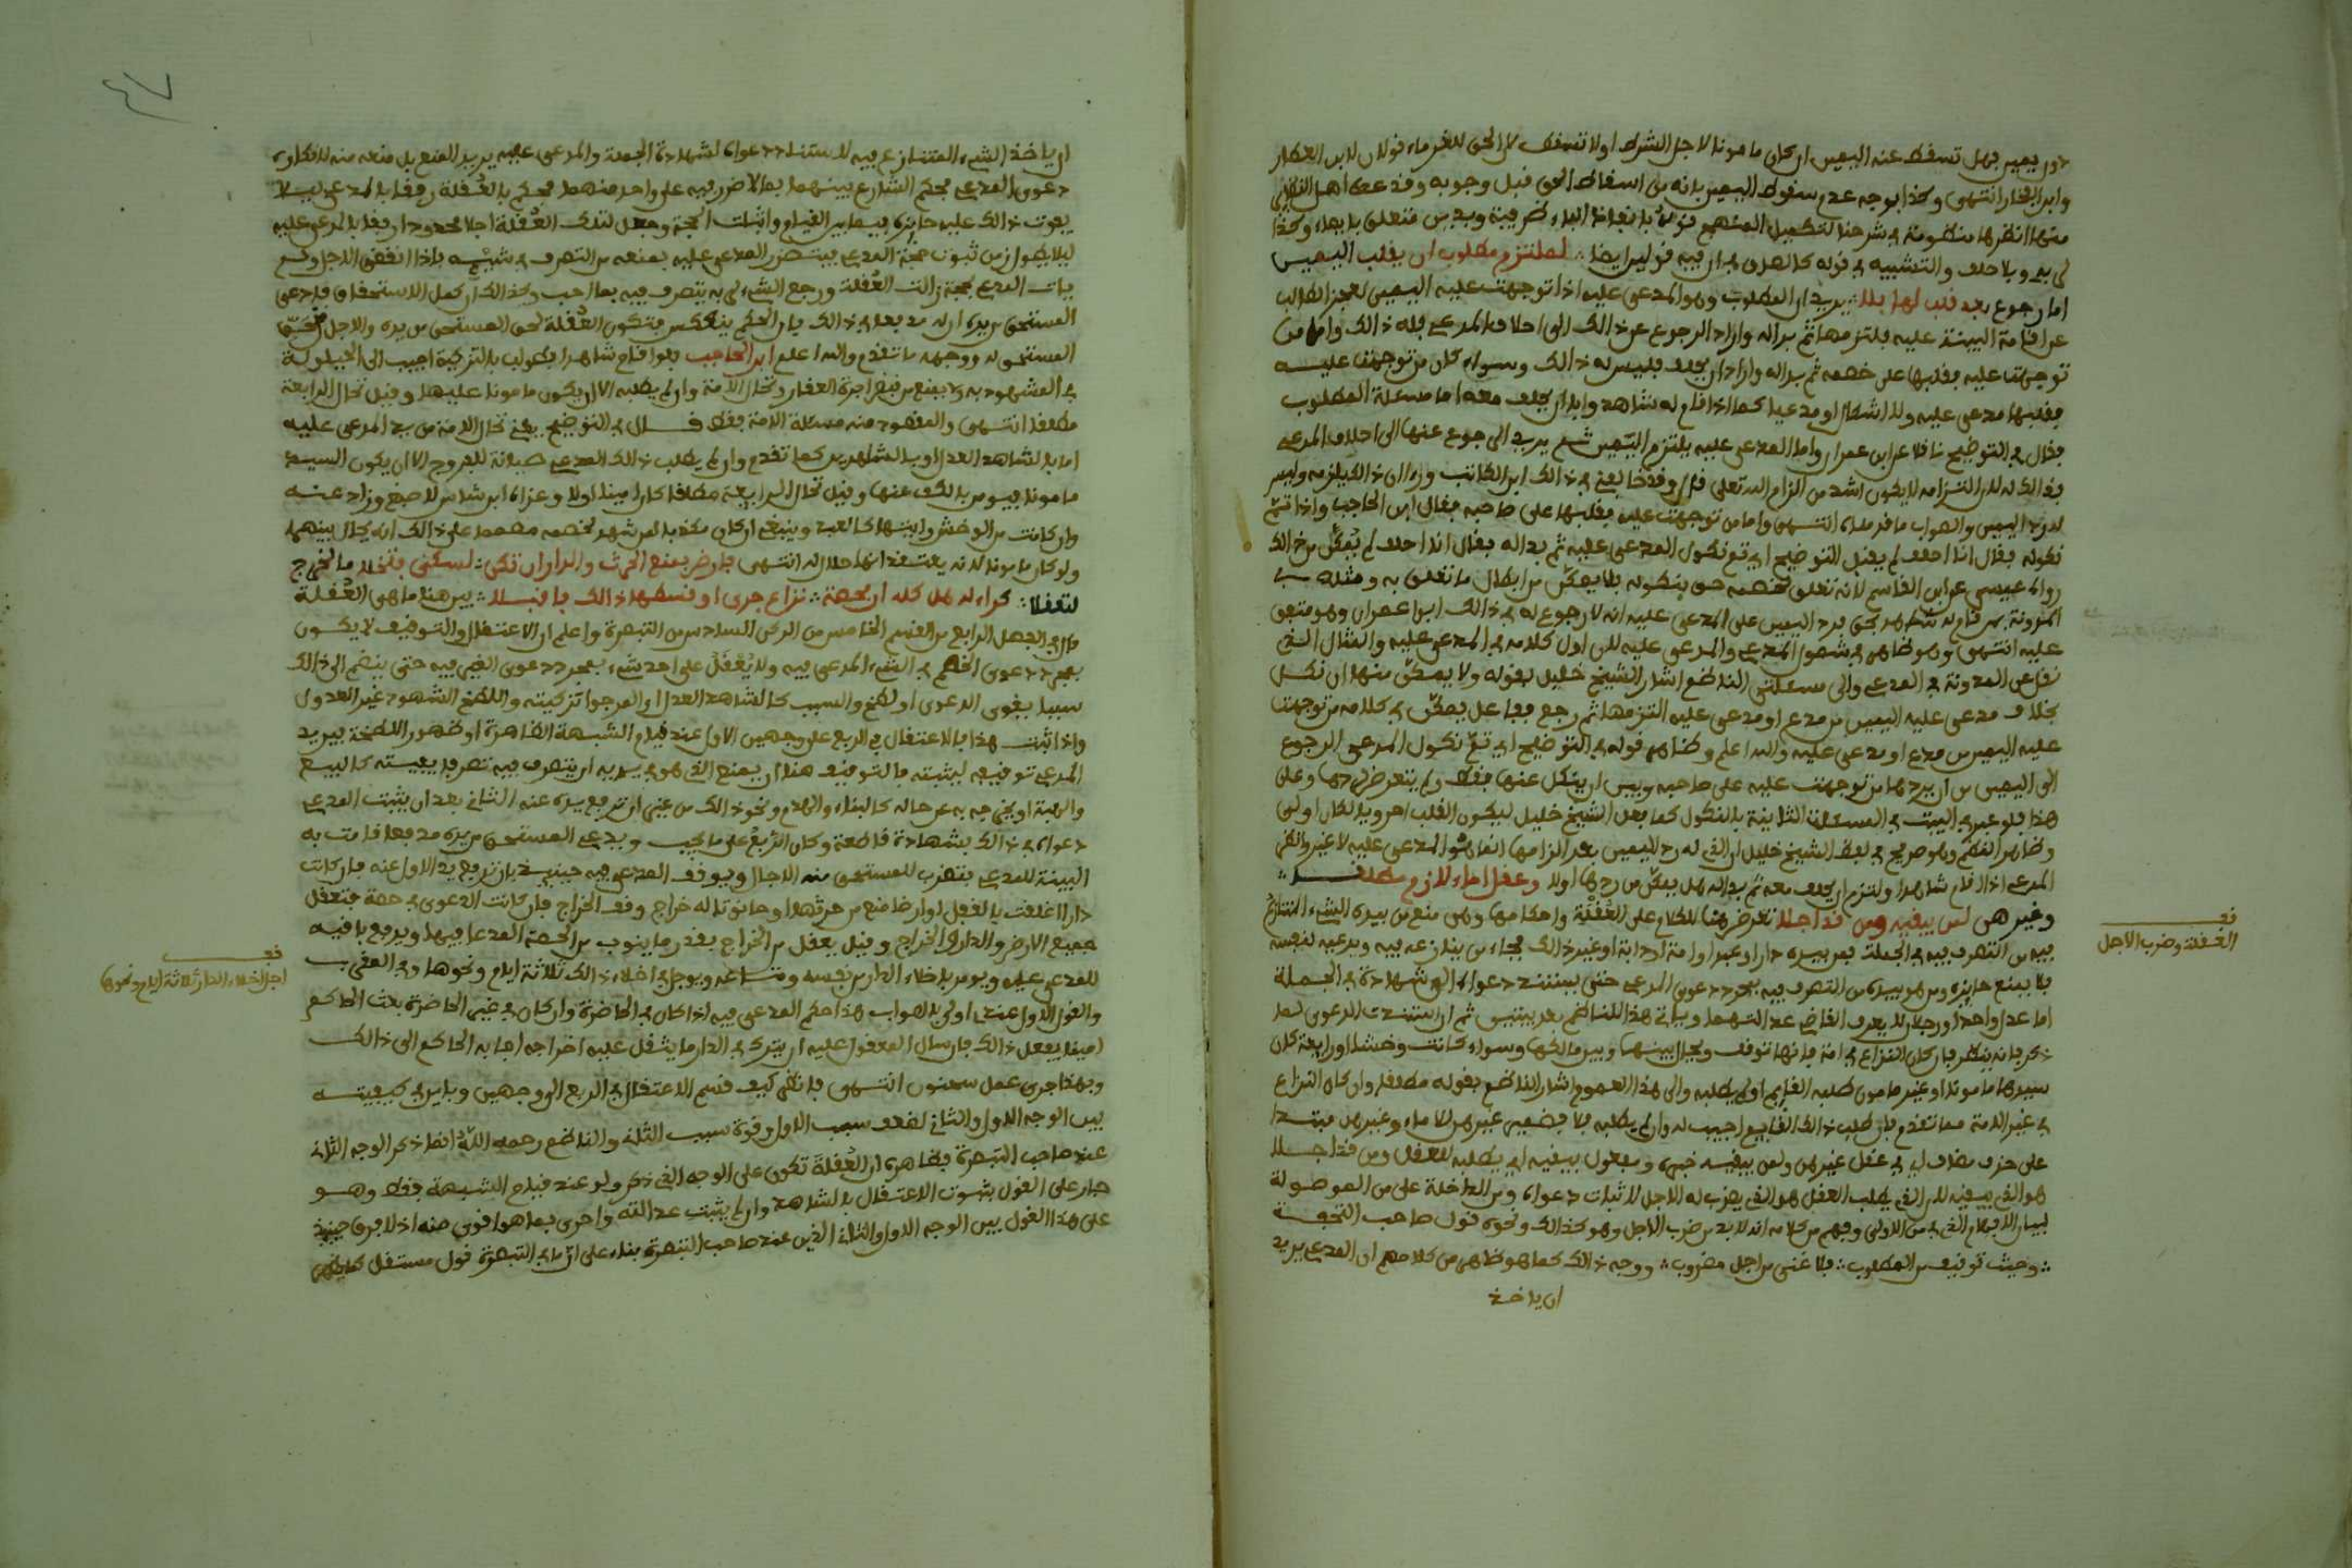 دون يمين فهل تسقط عنه اليمين ان كان مامونا لاجل الشرط او لا تسقط لان الحق للغرماء قولان لابن العطار
وابن الفخار انتهى وكذا يوجه عدم سقوط اليمين بانه من اسقاط الحق قبل وجوبه وقد
منها انظرها منظومة في شرحنا لتكميل المنهج
لي به وبلا حلف والتشبيه في قوله كالعدل في ان فيه قولين ايضا لملتزم مطلوب ان يقلب اليمين
اما رجوع بعد قلب لها بلا يريد ان المطلوب وهو المدعى عليه اذا توجهت عليه اليمين لعجز الطالب
عن اقامة البينة عليه فالتزمها ثم بدا له واراد الرجوع عن ذالك الى احلاف المدعي فله ذالك واما من
توجهت عليه فقلبها على خصمه ثم بدا له واراد ان يحلف فليس له ذالك وسواء كان من توجهت عليه
فقلبها مدعى عليه ولا اشكال او مدعيا كما اذا قام له شاهد وابى ان يحلف معه اما مسئلة المطلوب
فقال في التوضيح ناقلا عن ابن عمران واما المدعى عليه يلتزم اليمين ثم يريد الرجوع عنها الى احلاف المدعي
فذالك له لان التزامه لا يكون اشد من الزام الله تعلى قال وقد خالفني في ذالك ابن الكاتب ورءا ان ذالك يلزمه وليس
له رد اليمين والصواب ما قدمناه انتهى واما من توجهت عليه فقلبها على صاحبه فقال ابن الحاجب واذا تم
نكوله فقال انا احلف لم يقبل التوضيح اي تم نكول المدعى عليه ثم بدا له فقال انا احلف لم يمكن من ذالك
رواه عيسى عن ابن القاسم لانه تعلق لخصمه حق بنكوله فلا يمكن من ابطال ما تعلق به ومثله في
المدونة من قام له شاهد بحق فرد اليمين على المدعى عليه انه لا رجوع له في ذالك ابو عمران وهو متفق
عليه انتهى وهو ظاهر في شمول المدعي والمدعى عليه لان اول كلامه في المدعى عليه والمثال الذي
نقل عن المدونة في المدعي والى مسئلتي الناظم اشار الشيخ خليل بقوله ولا يمكن منها ان نكل
بخلاف مدعى عليه اليمين من مدع او مدعى عليه التزمها ثم رجع ففاعل يمكن في كلامه من توجهت
عليه اليمين من مدع او مدعى عليه والله اعلم وظاهر قوله في التوضيح اي تم نكول المدعي الرجوع
الى اليمين من ان يردها من توجهت عليه على صاحبه وبين ان ينكل عنها فقط ولم يتعرض لردها وعلى
هذا فلو عبر في البيت في المسئلة الثانية بالنكول كما فعل الشيخ خليل ليكون القلب احرويا لكان اولى
وظاهر النظم وهو صريح في لفظ الشيخ خليل ان الذي له رد اليمين بعد التزامها انما هو المدعى عليه لا غير وانظر
المدعي اذا اقام شاهدا والتزم ان يحلف معه ثم بدا له هل يمكن من ردها اولا وعقل اماء لازم مطلقا
وغير هن لمن يبغيه ومن قد اجلا تعرض هنا للكلام على العُقْلَة واحكامها وهي منع من بيده الشيء المتنازع
فيه من التصرف فيه في الجملة فمن بيده دار او عبد او امة او دابة او غير ذالك فجاء من ينازعه فيه ويدعيه لنفسه
فلا يمنع حايزه ومن هو بيده من التصرف فيه بمجرد دعوى المدعي حتى يستند دعواه الى شهادة في الجملة
اما عدل واحد او رجلان لا يعرف القاضي عدالتهما وياتي هذا للناظم بعد بيتين ثم ان استندت الدعوى لما
ذكر فانه ينظر فان كان النزاع في امة فانها توقف ويحال بينها وبين مالكها وسواء كانت وخشا او رايعة كان
سيدها مامونا او غير مامون طلبه القايم او لم يطلبه والى هذا العموم اشار الناظم بقوله مطلقا وان كان النزاع
في غير الامة مما تقدم فان طلب ذالك القايم اجيب له وان لم يطلبه فلا فضمير غيرهن للاماء وغيرهن مبتدا
على حذف مضاف اي في عقل غيرهن ولمن يبغيه خبره ومفعول يبغيه اي يطلبه للعقل ومن قد اجلا
هو الذي يبغيه لان الذي يطلب العقل هو الذي يضرب له الاجل لاثبات دعواه ومن الداخلة على من الموصولة
لبيان الابهام الذي في من الاولى وفهم من كلامه انه لا بد من ضرب الاجل وهو كذالك ونحوه قول صاحب التحفة
وحيث توقيف من المطلوب فلا غنى من اجل مضروب ووجه ذالك كما هو ظاهر من كلامهم ان المدعي يريد
ان ياخذ
فف
العقلة وضرب الاجل
ان ياخذ الشيء المتنازع فيه لاستناد دعواه لشهادة في الجملة والمدعى عليه يريد المنع بل منعه منه لانكاره
دعوى المدعي فحكم الشارع بينهما بما لا ضرر فيه على واحد منهما فحكم بالعُقلة رفقا بالمدعي ليلا
يفوت ذالك عليه حايزه فيما بين القيام واثبات الحجة وجعل لتلك العُقلة اجلا محدودا رفقا بالمدعى عليه
ليلا يطول زمن ثبوت حجة المدعي فيتضرر المدعى عليه بمنعه من التصرف في شيئه فاذا انقضى الاجل ولم
يات المدعي بحجة زالت العُقلة ورجع الشيء لربه يتصرف فيه بما احب وكذالك ان كمل الاستحقاق فادعى
المستحق من يده ان له مدفعا في ذالك فان الحكم ينعكس فتكون العُقلة لحق المستحق من يده والاجل لحق
المستحق له ووجهه ما تقدم والله اعلم ابن الحاجب فلو اقام شاهدا فطولب بالتزكية اجيب الى الحيلولة
في المشهود به ولا يمنع من قبض اجرة العقار وتحال الامة وان لم يطلبه الا ان يكون مامونا عليها وقيل تحال الرايعة
مطلقا انتهى والمقصود منه مسئلة الامة فقط قال في التوضيح يعني تحال الامة من يد المدعى عليه
اما بالشاهد العدل او بالشاهدين كما تقدم وان لم يطلب ذالك المدعي صيانة للفروج الا ان يكون السيد
مامونا فيومر بالكف عنها وقيل تحال الرايعة مطلقا كان امينا او لا وعزاه ابن شاس لاصبغ وزاد عنه
وان كانت من الوخش وابنتها كالعبد وينبغي ان كان مكذبا لمن شهد لخصمه مصمما على ذالك انه يحال بينهما
ولو كان مامونا لانه يعتقد انها حلال له انتهى فارض بمنع الحرث والدار ان تكن لسكنى فتخلا ما الخرج
لتعقلا كراء له هل كله ان بحصة نزاع جرى او قسطها ذالك فاقبلا بين هنا ما هي العُقلة
قال في الفصل الرابع من القسم الخامس من الركن السادس من التبصرة واعلم ان الاعتقال والتوقيف لا يكون
بمجرد دعوى الخصم في الشيء المدعى فيه ولا يُعْقَلُ على احد شيء بمجرد دعوى الغير فيه حتى ينضم الى ذالك
سبب يقوي الدعوى او لطخ والسبب كالشاهد العدل او المرجوا تزكيته واللطخ الشهود غير العدول
واذا ثبت هذا فالاعتقال في الربع على وجهين الاول عند قيام الشبهة الظاهرة او ظهور اللطخة فيريد
المدعي توقيفه ليثبته فالتوقيف هنا ان يمنع الذي هو في يديه ان يتصرف فيه تصرفا يفيته كالبيع
والهبة او يخرجه به عن حاله كالبناء والهدم ونحو ذالك من غير ان ترفع يده عنه الثاني بعد ان يثبت المدعي
دعواه في ذالك بشهادة قاطعة وكان الرَّبعُ على ما يجب ويدعي المستحق من يده مدفعا قامت به
البينة للمدعي فتضرب للمستحق منه الاجال ويوقف المدعى فيه حينيذ بان ترفع يد الاول عنه فان كانت
دارا اغلقت بالقفل او ارضا منع من حرثها او حانوتا له خراج وقف الخراج فان كانت الدعوى في حصة فتعقل
جميع الارض والدار والخراج وقيل يعقل من الخراج بقدر ما ينوب من الحصة المدعا فيها ويدفع باقيه
للمدعى عليه ويومر باخلاء الدار من نفسه ومتاعه ويوجل في اخلاء ذالك ثلاثة ايام ونحوها
والقول الاول عندنا اولى بالصواب هذا حكم المدعى فيه اذا كان في الحاضرة وان كان في غير الحاضرة بعث الحاكم
امينا يفعل ذالك فان سال المعقول عليه ان يترك في الدار ما يثقل عليه اخراجه اجابه الحاكم الى ذالك
وبهذا جرى عمل سحنون انتهى فانظر كيف قسم الاعتقال في الربع الى وجهين وباين في كيفيته
بين الوجه الاول والثاني لضعف سبب الاول وقوة سبب الثاني والناظم رحمه الله انما ذكر الوجه الثاني
عند صاحب التبصرة فظاهره ان العُقلة تكون على الوجه الذي ذكر ولو عند قيام الشبهة فقط وهو
جار على القول بثبوت الاعتقال بالشاهد وان لم يثبت عدالته واحرى بما هو اقوى منه اذ لا فرق حينيذ
على هذا القول بين الوجه الاول والثاني الذين عند صاحب التبصرة بناء على ان ما في التبصرة قول مستقل كما يظهر
فف
اجل اخلاء الدار ثلاثة ايام ونحوها